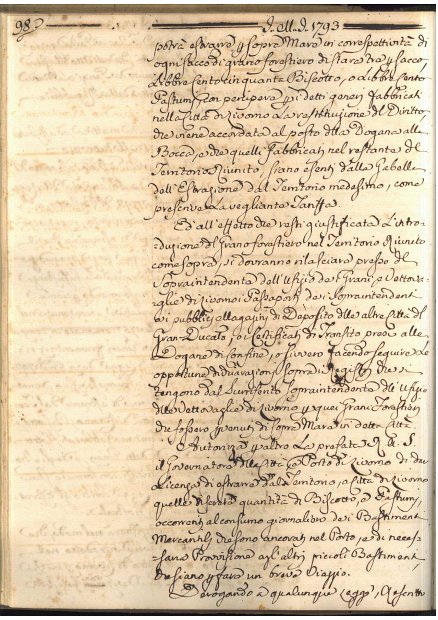 98
A. M. D. 1793
potrà estrarre p sopra Mare in correspettività di
ogni sacco di grano forestiero di stara tre p sacco
Libbre cento cinquanta Biscotto, o Libbre cento
Pastumi, con percipere p i detti generi fabbricati
nella Città di Livorno La restituzione del Diritto,
che viene accordata al posto della Dogana alla
Bocca, e che quelli fabbricati nel restante del
Territorio riunito, siano esenti dalla Gabella
dell'Estrazione dal Territorio medesimo, come
prescrive La vegliante Tariffa.
Ed all'effetto che resti giustificata L'intro-
duzione del Grano forestiero nel Territorio Riunito
come sopra, si dovranno rilasciare presso del
Sopraintendente dell'Ufizio de' Grani, e Vettova-
glie di Livorno i Passaporti dei Sopraintendenti
ai pubblici Magazzini di Deposito delle altre Città del
Gran Ducato, o i Certificati di Transito presi alle
Dogane di confine, o sivvero facendo seguire Le
opportune dichiarazioni sopra i Registri che si
tengono dal Sopraintendente dell'Ufizio
delle Vettovaglie di Livorno p quei Grani forestieri
che fossero pervenuti di sopra Mare in detta Città.
Autorizza p altro La prefata R. A. S.
il Governatore della Città e Porto di Livorno di dar
Licenza di estrarre dal Territorio, e Città di Livorno
quelle discrete quantità di Biscotto, e Pastumi
occorrenti al consumo giornaliero dei Bastimenti
Mercantili che sono ancorati nel Porto, e di neces-
saria Provvisione agli altri piccoli Bastimenti
che siano p fare un breve Viaggio.
Derogando a qualunque Legge,